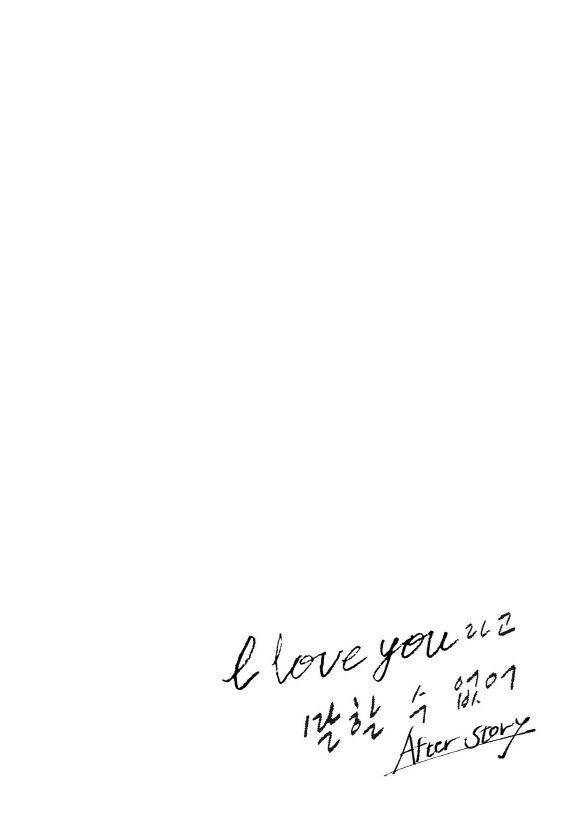 I love you라고
말할 수 없어
After story